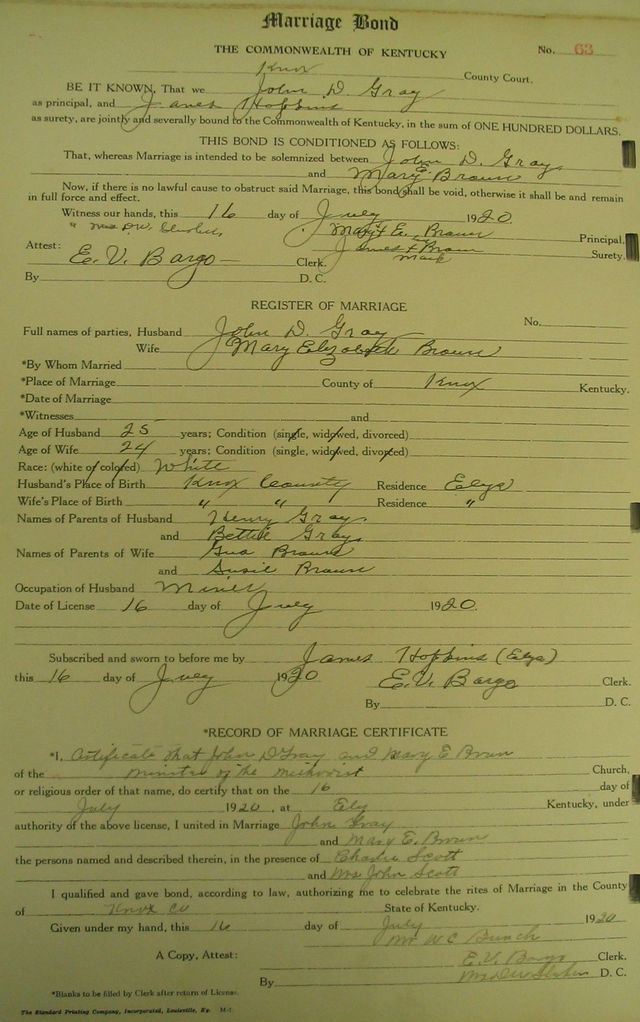 Marriage Bond
THE COMMONWEALTH OF KENTUCKY
No. 63
Knox County Court.
BE IT KNOWN, That we John D. Gray
as principal, and James Hopkins
as surety, are jointly and severally bound to the Commonwealth of Kentucky, in the sum of ONE HUNDRED DOLLARS.
THIS BOND IS CONDITIONED AS FOLLOWS:
That, whereas Marriage is intended to be solemnized between John D. Gray
and Mary E Brown
Now, if there is no lawful cause to obstruct said Marriage, this bond shall be void, otherwise it shall be and remain
in full force and effect.
Witness our hands, this 16 day of July 1920.
Mary E. Brown Principal.
Attest: James x Brown Surety.
E. V. Bargo Clerk. Mark
By D. C.
REGISTER OF MARRIAGE
No.
Full names of parties, Husband John D. Gray
Wife Mary Elizabeth Brown
*By Whom Married
*Place of Marriage County of Knox Kentucky.
*Date of Marriage
*Witnesses and
Age of Husband 25 years; Condition (single, widowed, divorced)
Age of Wife 24 years; Condition (single, widowed, divorced)
Race: (white or colored) White
Husband's Place of Birth Knox County Residence Elys
Wife's Place of Birth " " Residence "
Names of Parents of Husband Henry Gray
and Bettie Gray
Names of Parents of Wife Gus Brown
and Susie Brown
Occupation of Husband Miner
Date of License 16 day of July 1920.
Subscribed and sworn to before me by James Hopkins (Elys)
this 16 day of July 1920 E. V. Bargo Clerk.
By D. C.
*RECORD OF MARRIAGE CERTIFICATE
*I, Certificate that John D Gray and Mary E Brown
of the minister of the methodist Church,
or religious order of that name, do certify that on the 16 day of
July 1920, at Ely Kentucky, under
authority of the above license, I united in Marriage John Gray
and Mary E. Brown
the persons named and described therein, in the presence of Charlie Scott
and Mrs John Scott
I qualified and gave bond, according to law, authorizing me to celebrate the rites of Marriage in the County
of Knox Co State of Kentucky.
Given under my hand, this 16 day of July 1920
Mr W C Bunch
A Copy, Attest: E. V. Bargo Clerk.
By D. C.
*Blanks to be filled by Clerk after return of License.
The Standard Printing Company, Incorporated, Louisville, Ky. M-1